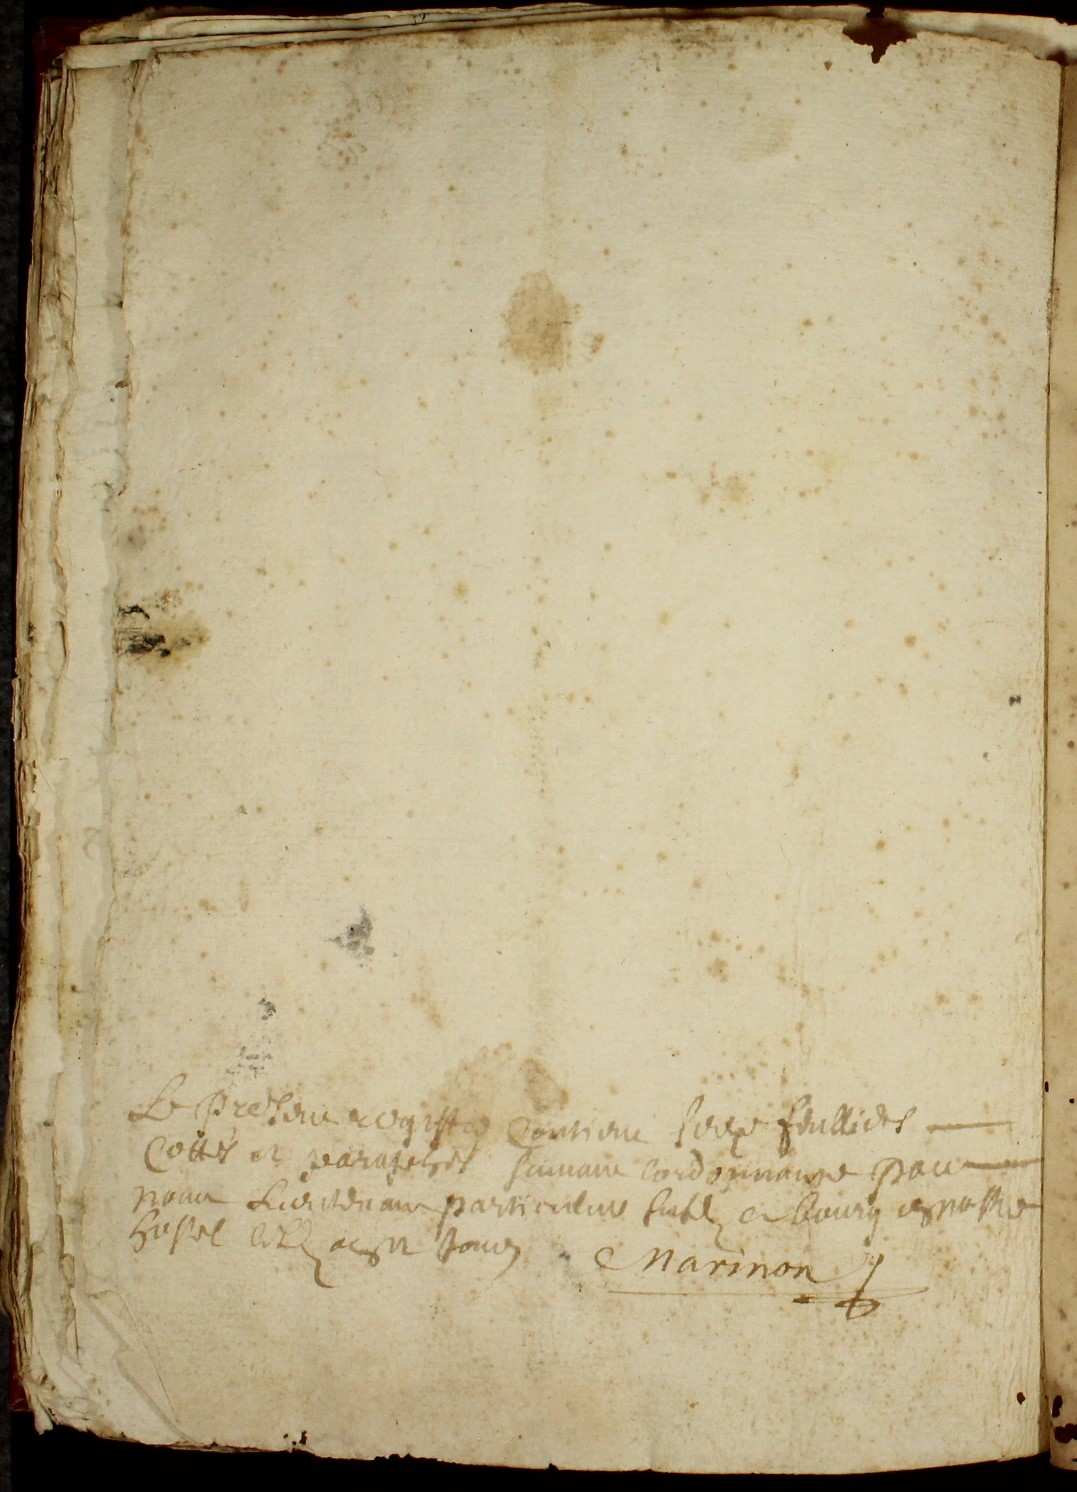 Le present registre contient seize feullietz
Cottés et paraphés suivant lordonnance par
nous Lieutenant particulier a bourg en nostre
hostel
Marinon